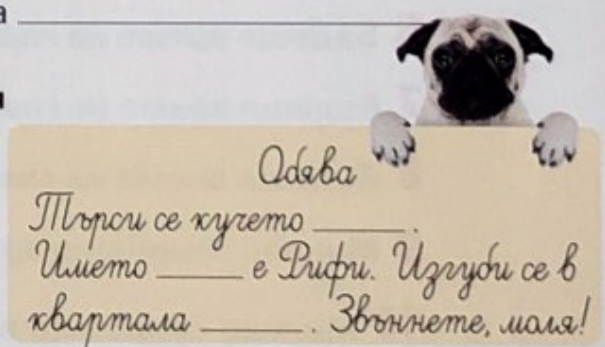 а ____________
Обява
Търси се кучето ______.
Името _____ е Рифи. Изгуби се в
квартала ______. Звъннете, моля!